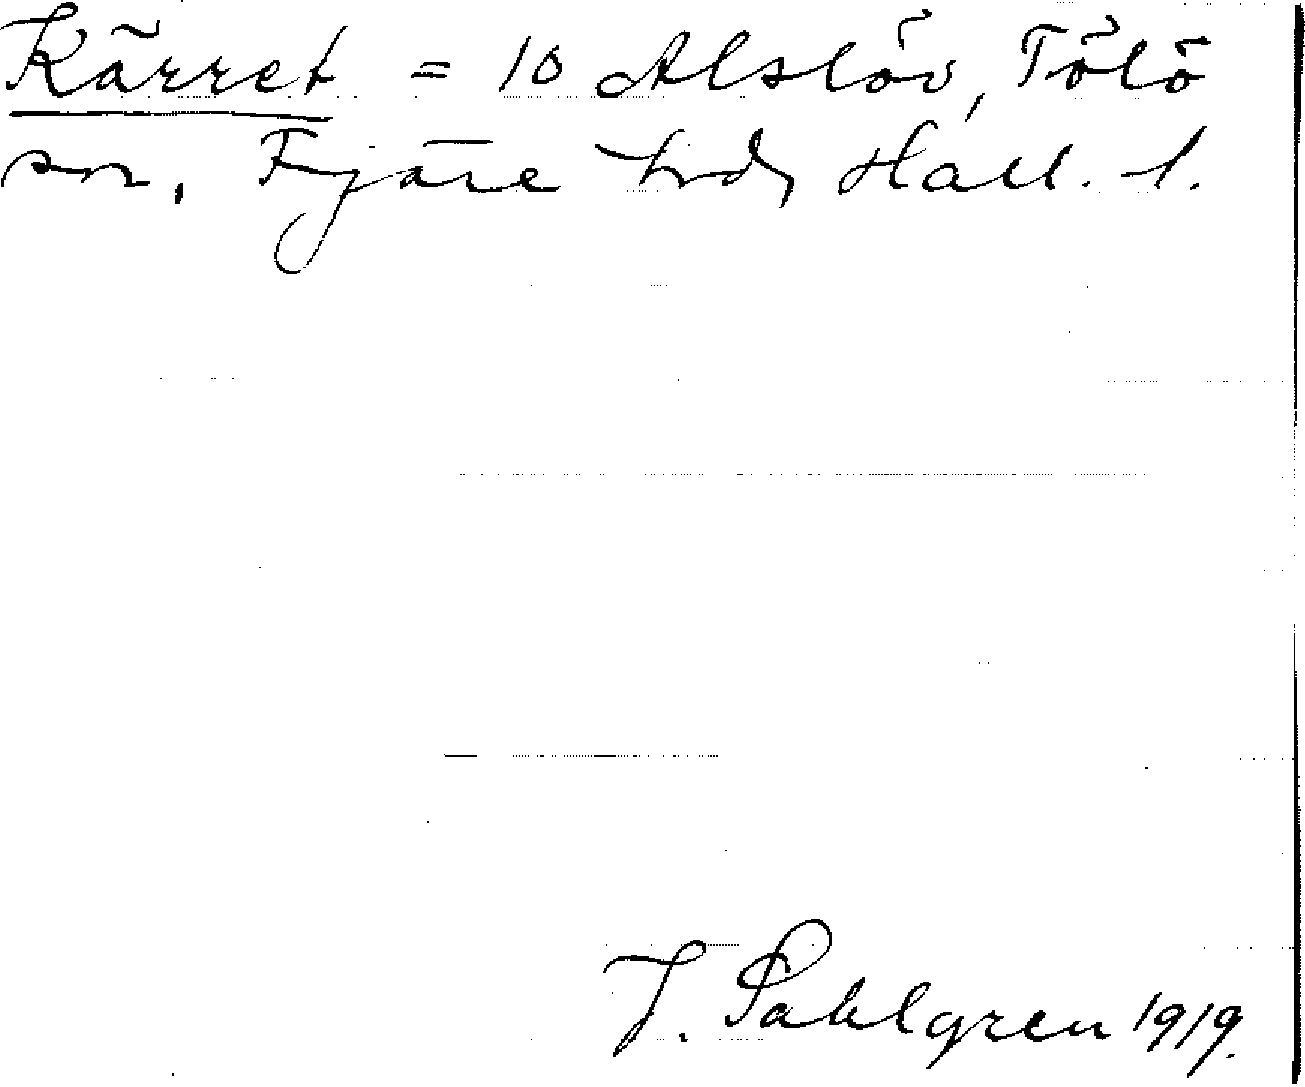 Kärret = 10 Alslöv, Tölö
sn, Fjäre hd, Hall. l.
J. Sahlgren 1919.